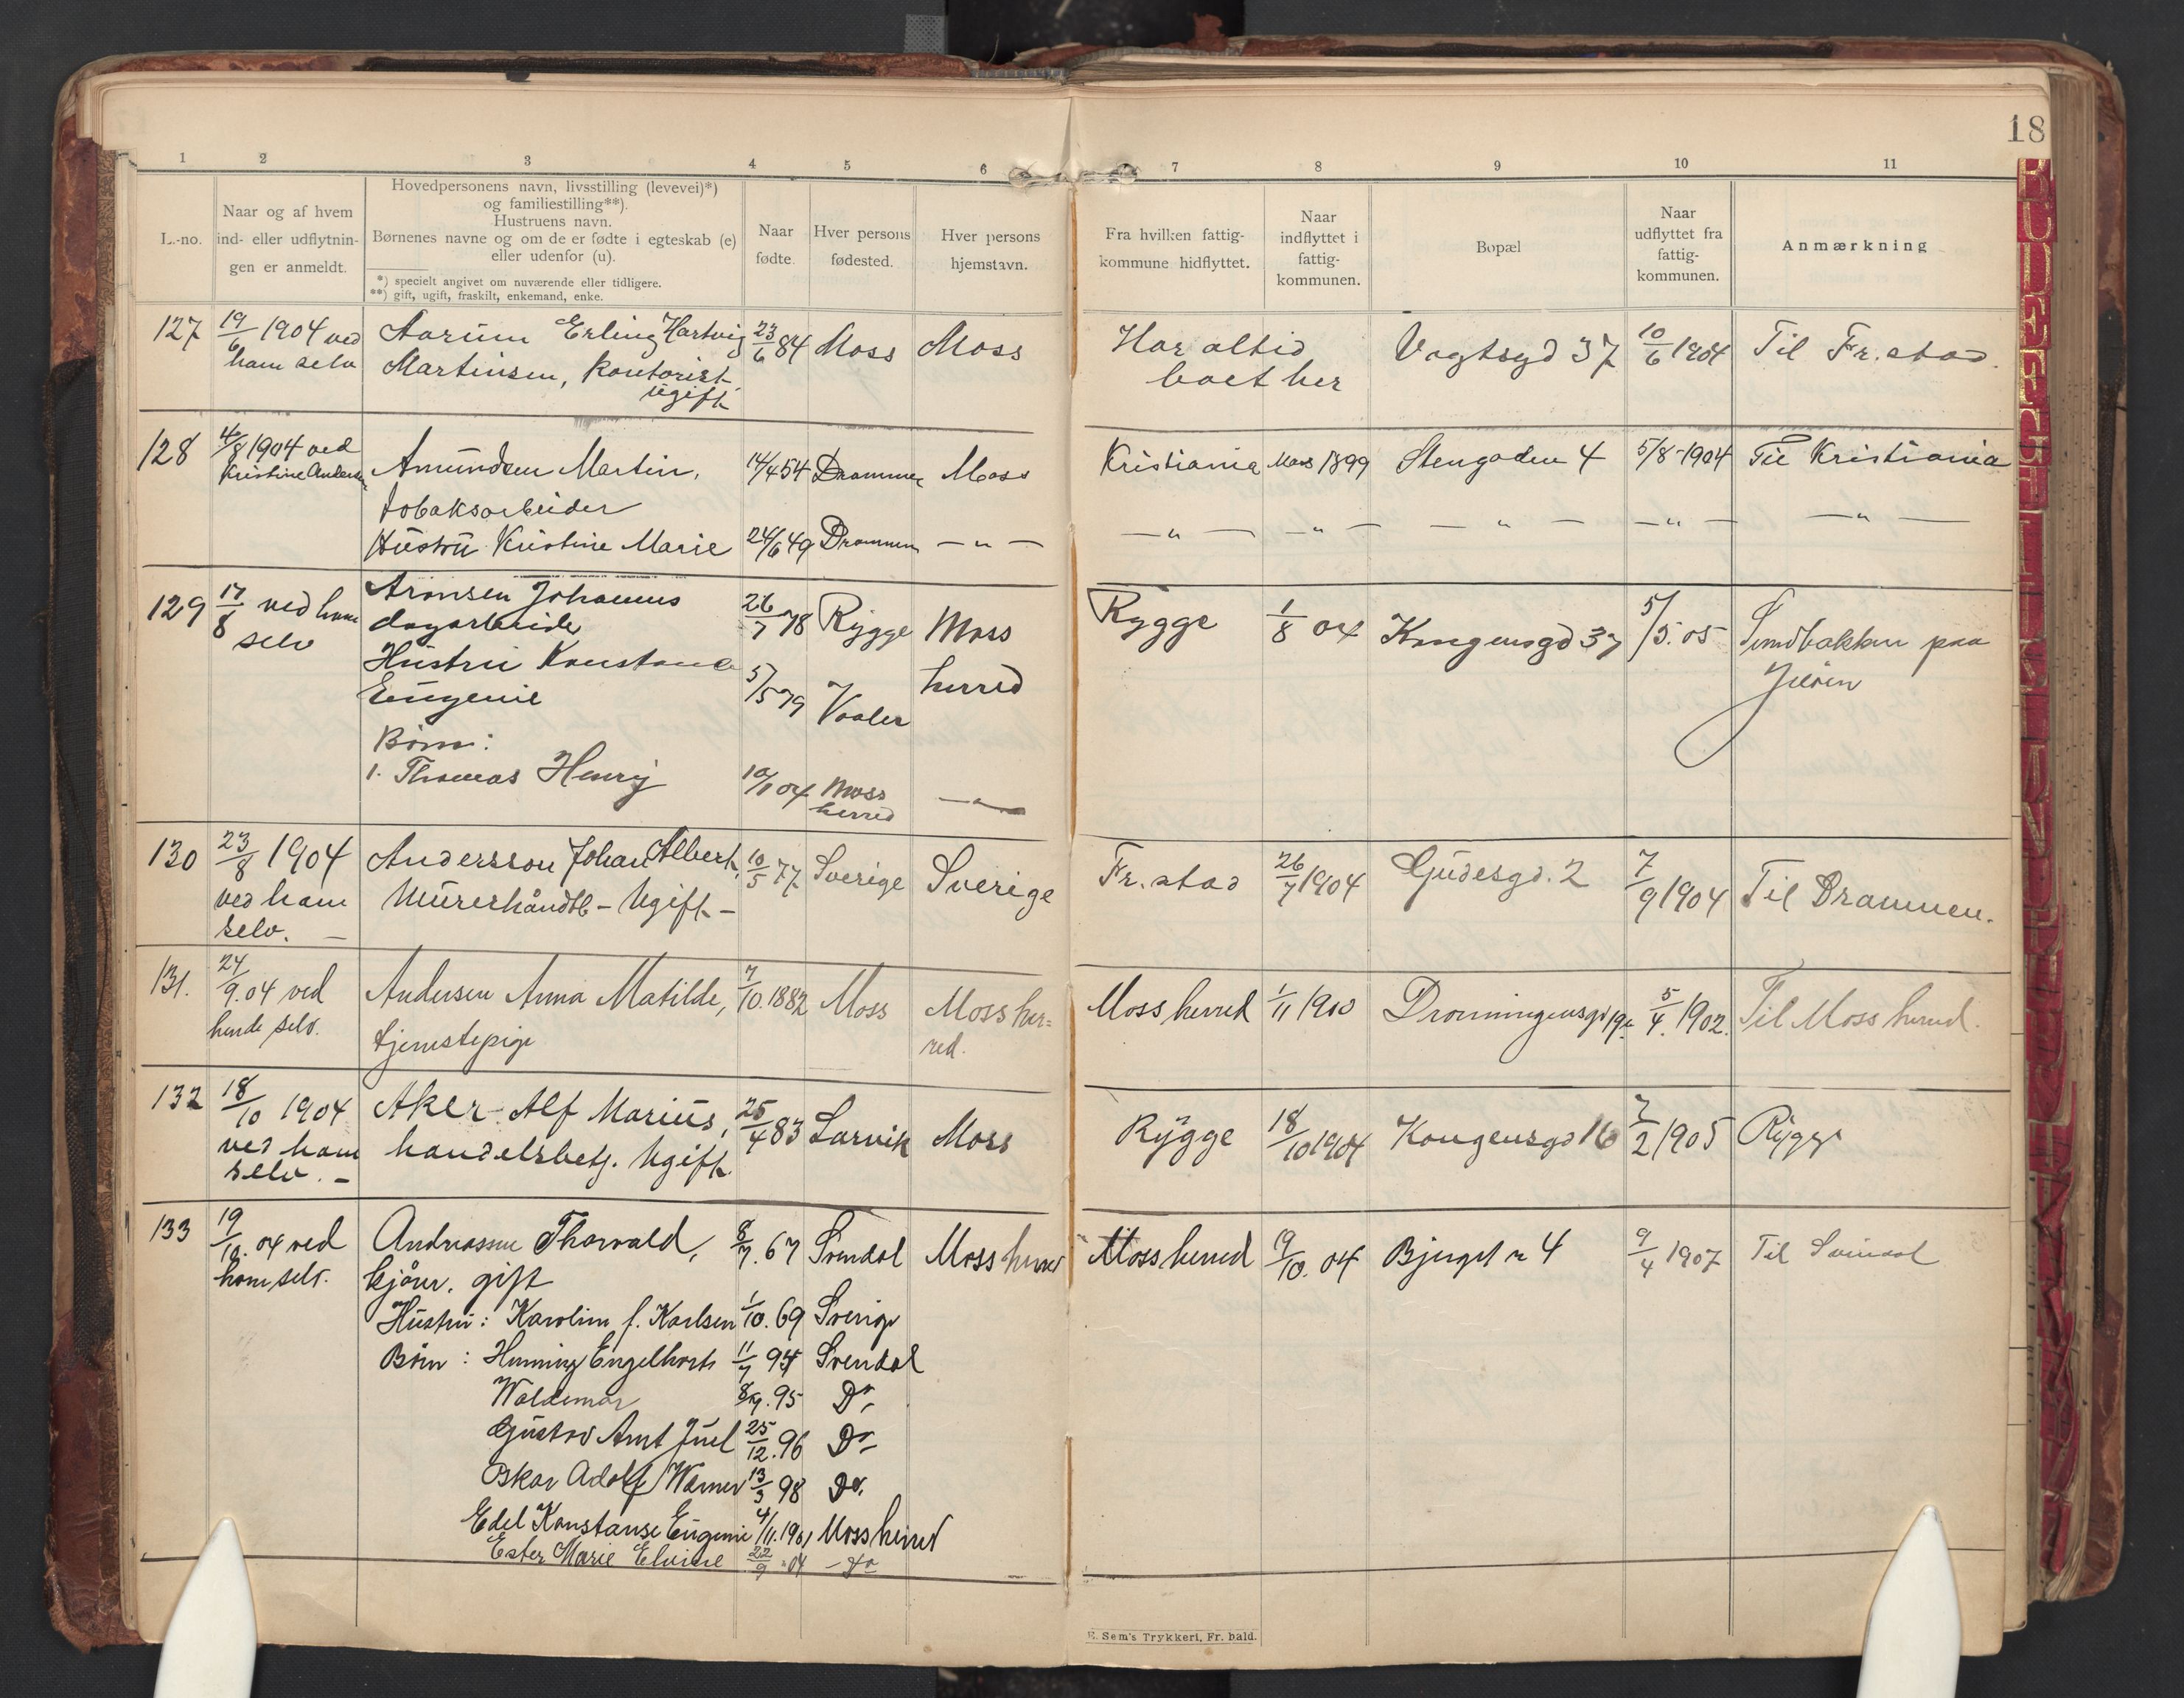 18
1 2 3 4 5 6 7 8 9 10 11
L.-no.
Naar og af hvem
ind- eller udflytnin-
gen er anmeldt.
Hovedpersonens navn, livsstilling (levevei)*)
og familiestilling**).
Hustruens navn.
Børnenes navne og om de er fødte i egteskab (e)
eller udenfor (u).
*) specielt angivet om nuværende eller tidligere.
**) gift, ugift, fraskilt, enkemand, enke.
Naar
fødte.
Hver persons
fødested.
Hver persons
hjemstavn.
Fra hvilken fattig-
kommune hidflyttet.
Naar
indflyttet i
fattig-
kommunen.
Bopæl
Naar
udflyttet fra
fattig-
kommunen.
Anmærkning
127 19/6 1904 ved Aarum Erling Hartvig 23/6 84 Moss Moss Har altid Vogtsgd 37 10/6 1904 Til Fr.stad.
ham selv Martinsen, kontorist boet her
ugift
128 4/8 1904 ved Amundsen Martin, 14/4 54 Drammen Moss Kristiania Mars 1899 Stengaden 4 5/8-1904 Til Kristiania
Kristine Andersen
tobaksarbeider
Hustru Kristine Marie 24/6 49 Drammen — „ — — „ — — „ — — „ — — „ — — „ —
129 17/8 ved ham Aronsen Johannes 26/7 78 Rygge Moss Rygge 1/8 04 Kongensgd 37 5/5. 05 Sundbakken paa
selv dagarbeider herred Jeløen
Hustru Konstance 5/5 79 Vaaler
Eugenie
Børn:
1. Thomas Henry 10/1 04 Moss — „ —
herred
130 23/8 1904 Andersson Johan Albert, 10/5 77 Sverige Sverige Fr.stad 26/7 1904 Gudesgd. 2 7/9 1904 Til Drammen.
ved ham Murerhåndtl - Ugift -
selv. —
131. 24/9. 04 ved Andersen Anna Matilde, 7/10. 1882 Moss Moss her= Moss herred 1/11 1900 Dronningensgd 19 5/4. 1902. Til Moss herred.
hende selv. tjenestepige red.
132 18/10 1904 Aker Alf Marius, 25/4 83 Larvik Moss Rygge 18/10 1904 Kongensgd 16 7/2 1905 Rygge
ved ham handelsbetj. Ugift
selv. —
133 19/10. 04 ved Andreassen Thorvald, 8/7. 67 Svendal Moss herred Moss herred 19/10. 04 Bjergd n 4 9/4 1907 Til Svindal
ham selv. kjører. gift
Hustru: Karoline f. Karlsen 1/10. 69 Sverige
Børn: Henning Engelhart 11/7 94 Svendal
Waldemar 8/9. 95 Do
Gustav Arnt Juel 25/12. 96 Do
Oskar Adolf Werner 13/3 98 Do.
Edel Konstanse Eugenie 4/11. 1901 Moss herred
Ester Marie Elvine 22/9 04 - do
E. Sem's Trykkeri, Fr. hald.